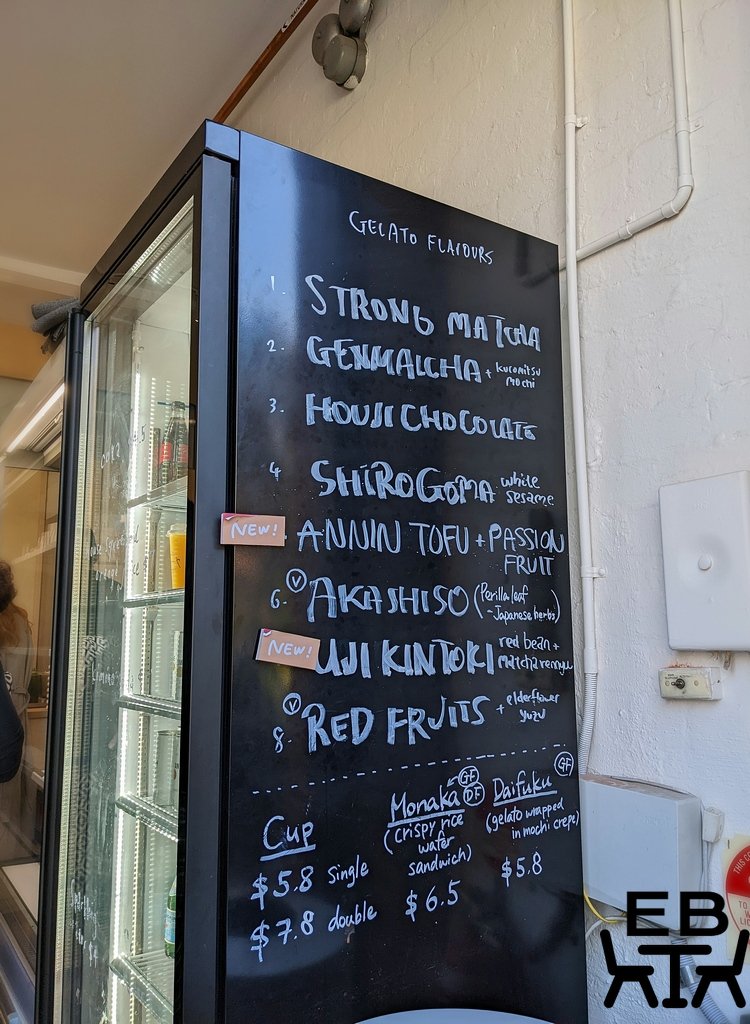 GELATO FLAVOURS
1. STRONG MATCHA
2. GENMAICHA + kuromitsu mochi
3. HOUJI CHOCOLATE
4 SHIROGOMA white sesame
NEW! ANNIN TOFU + PASSION FRUIT
6. V AKASHISO (Perilla leaf - Japanese herbs)
NEW! UJI KINTOKI red bean + matcha renyu
8. V RED FRUITS + elderflower yuzu
Cup
$5.8 single
$7.8 double
Monaka GF DF
(crispy rice
wafer
sandwich)
$6.5
GF
Daifuku
(gelato wrapped
in mochi crepe)
$5.8
EB